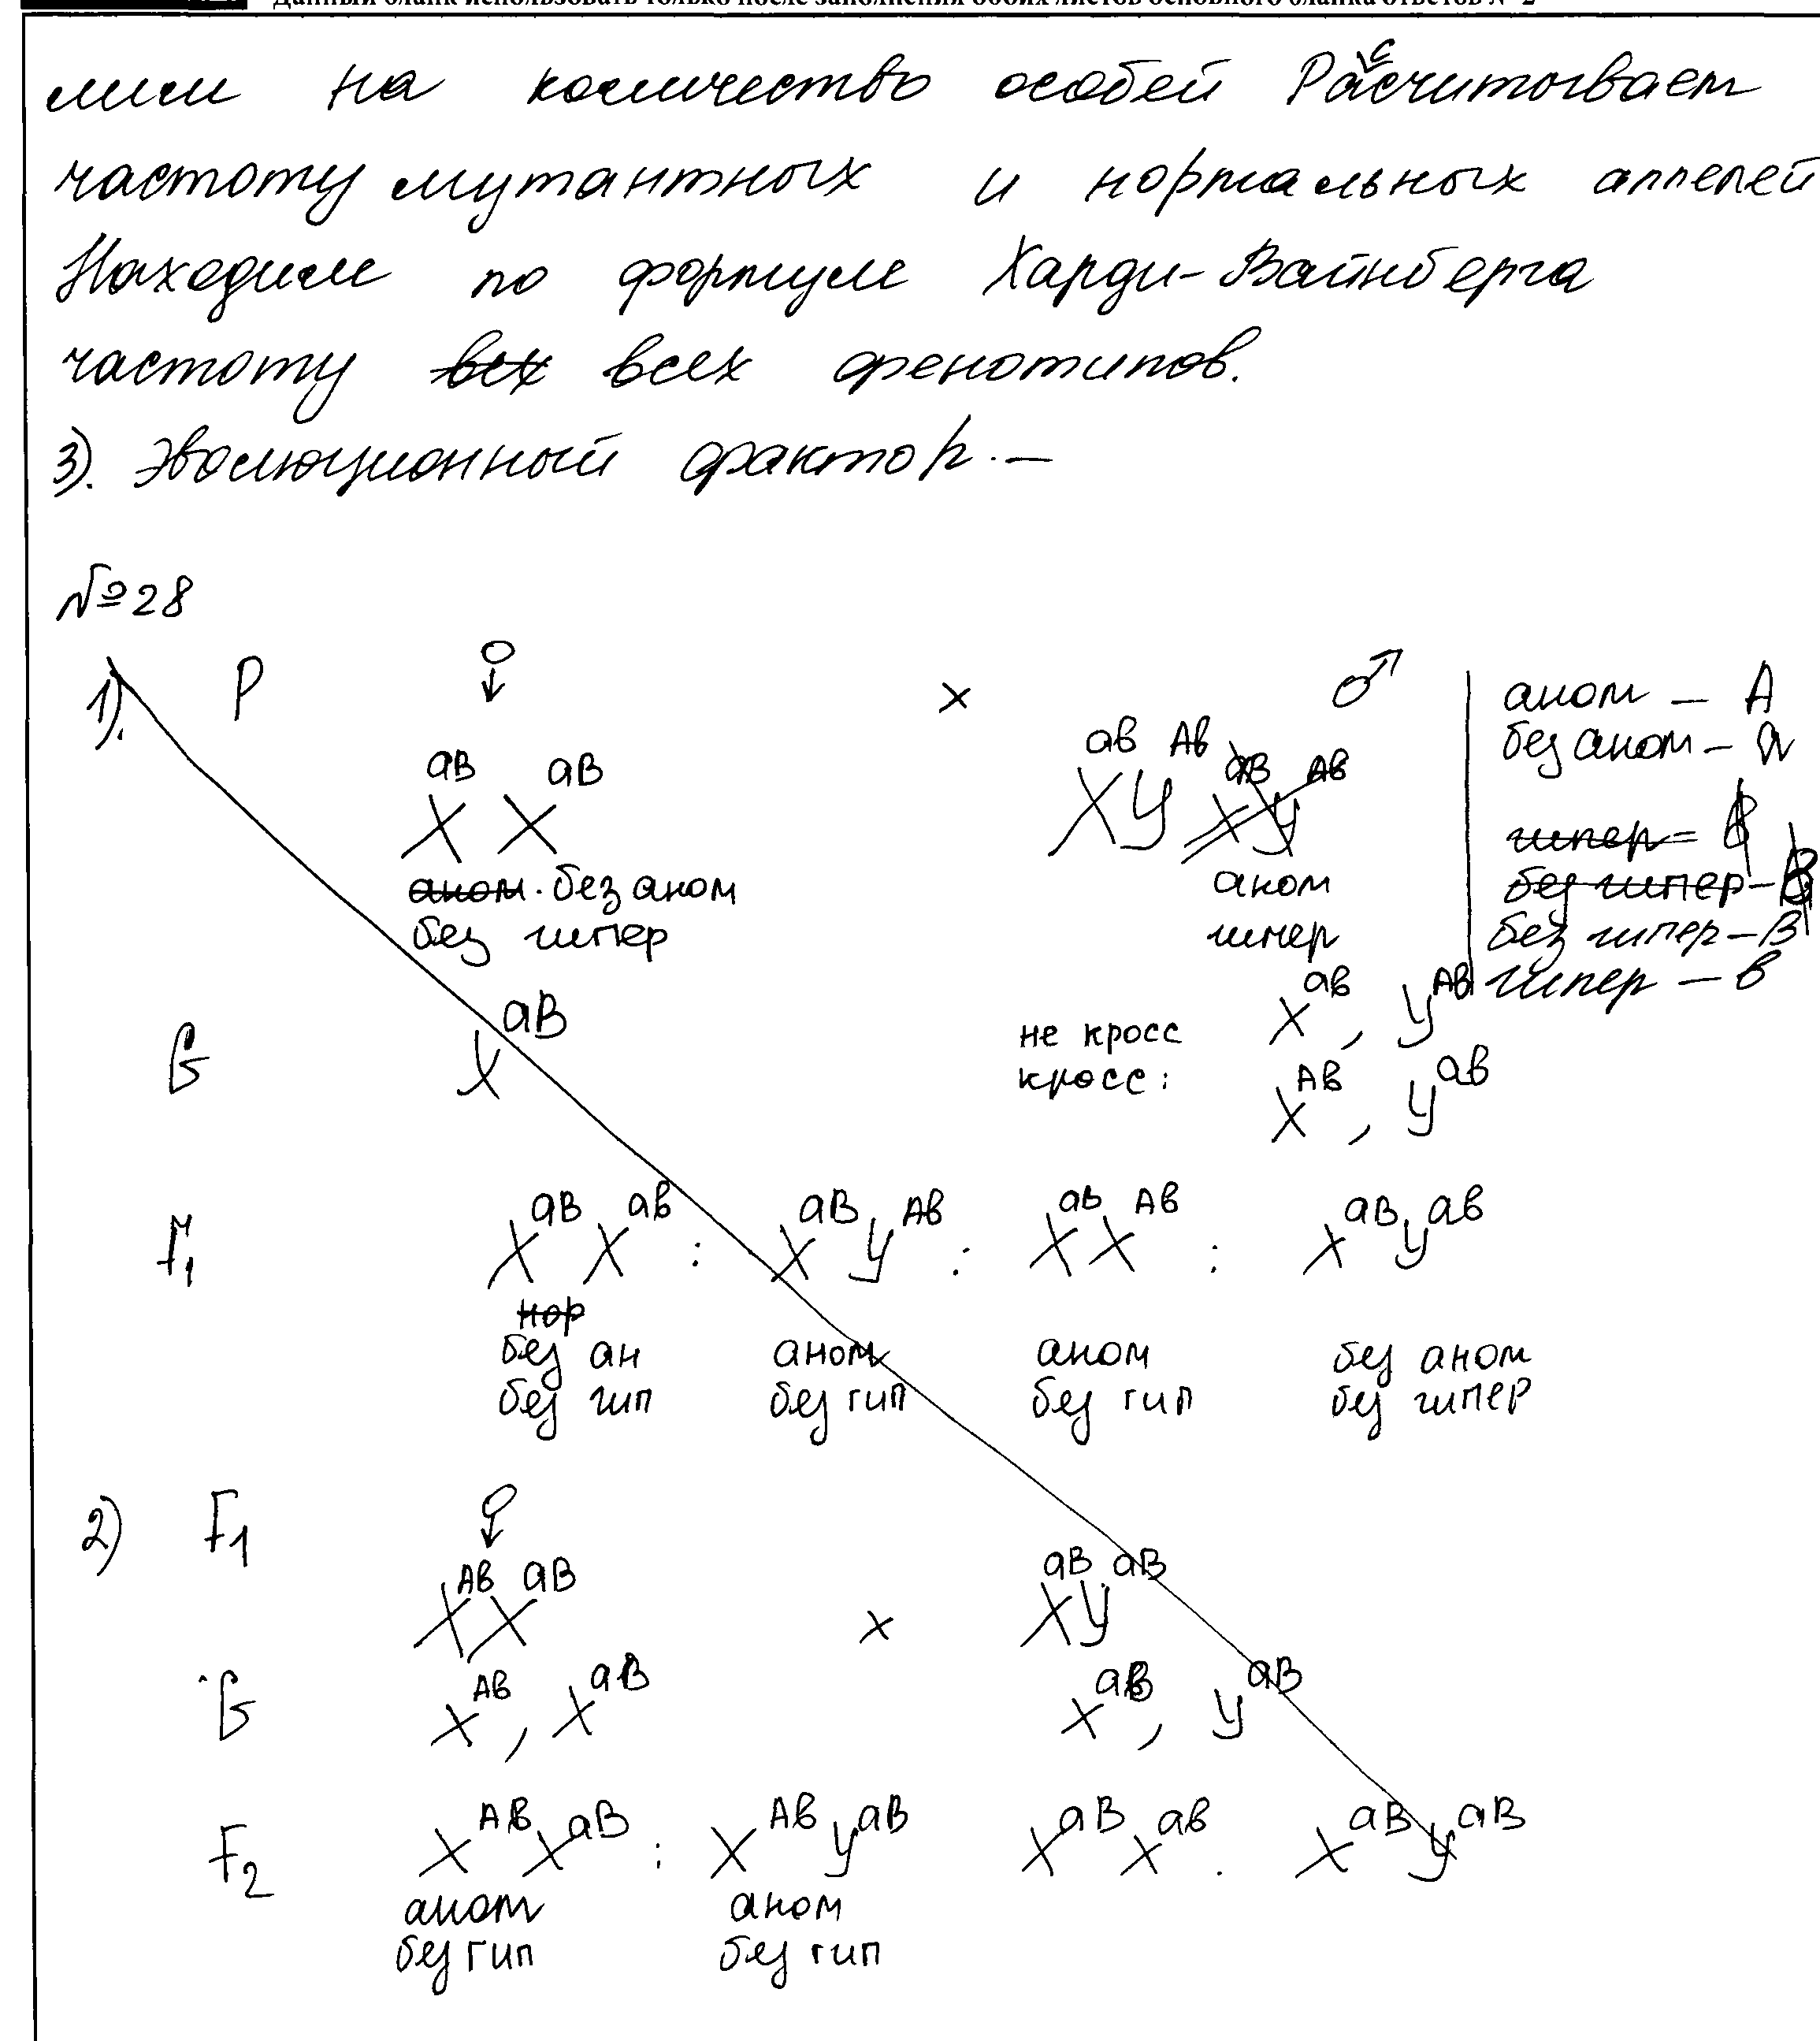 Данный бланк использовать только после заполнения обоих листов основного бланка ответов № 2
лили на количество особей Расчитываем
с
частоту мутантных и нормальных аллелей
Находим по формуле Харди-Вайнберга
частоту вех всех фенотипов.
3). Эволюционный фактор. —
№28
1). P ♀ × ♂
аном – A
без аном – a
X^aB X^aB
X^ab Y^Ab X^aB Y^Ab
гипер =
без гипер –
аном. без аном
без гипер
аном
гипер
без гипер – B
гипер – b
G X^aB
не кросс X^ab, Y^Ab
кросс: X^Ab, Y^ab
F1 X^aB X^ab : X^aB Y^Ab : X^ab X^Ab : X^aB Y^ab
нор
без ан аном аном без аном
без гип без гип без гип без гипер
2) F1 ♀
X^Ab X^aB × X^aB Y^aB
G X^Ab, X^aB X^aB, Y^aB
F2 X^Ab X^aB : X^Ab Y^aB X^aB X^ab . X^aB Y^aB
аном аном
без гип без гип